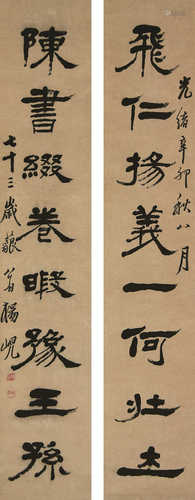 飛仁揚義一何壯
光緒辛卯秋八月
陳書綴卷暇豫王孫
七十三歲藐翁楊峴